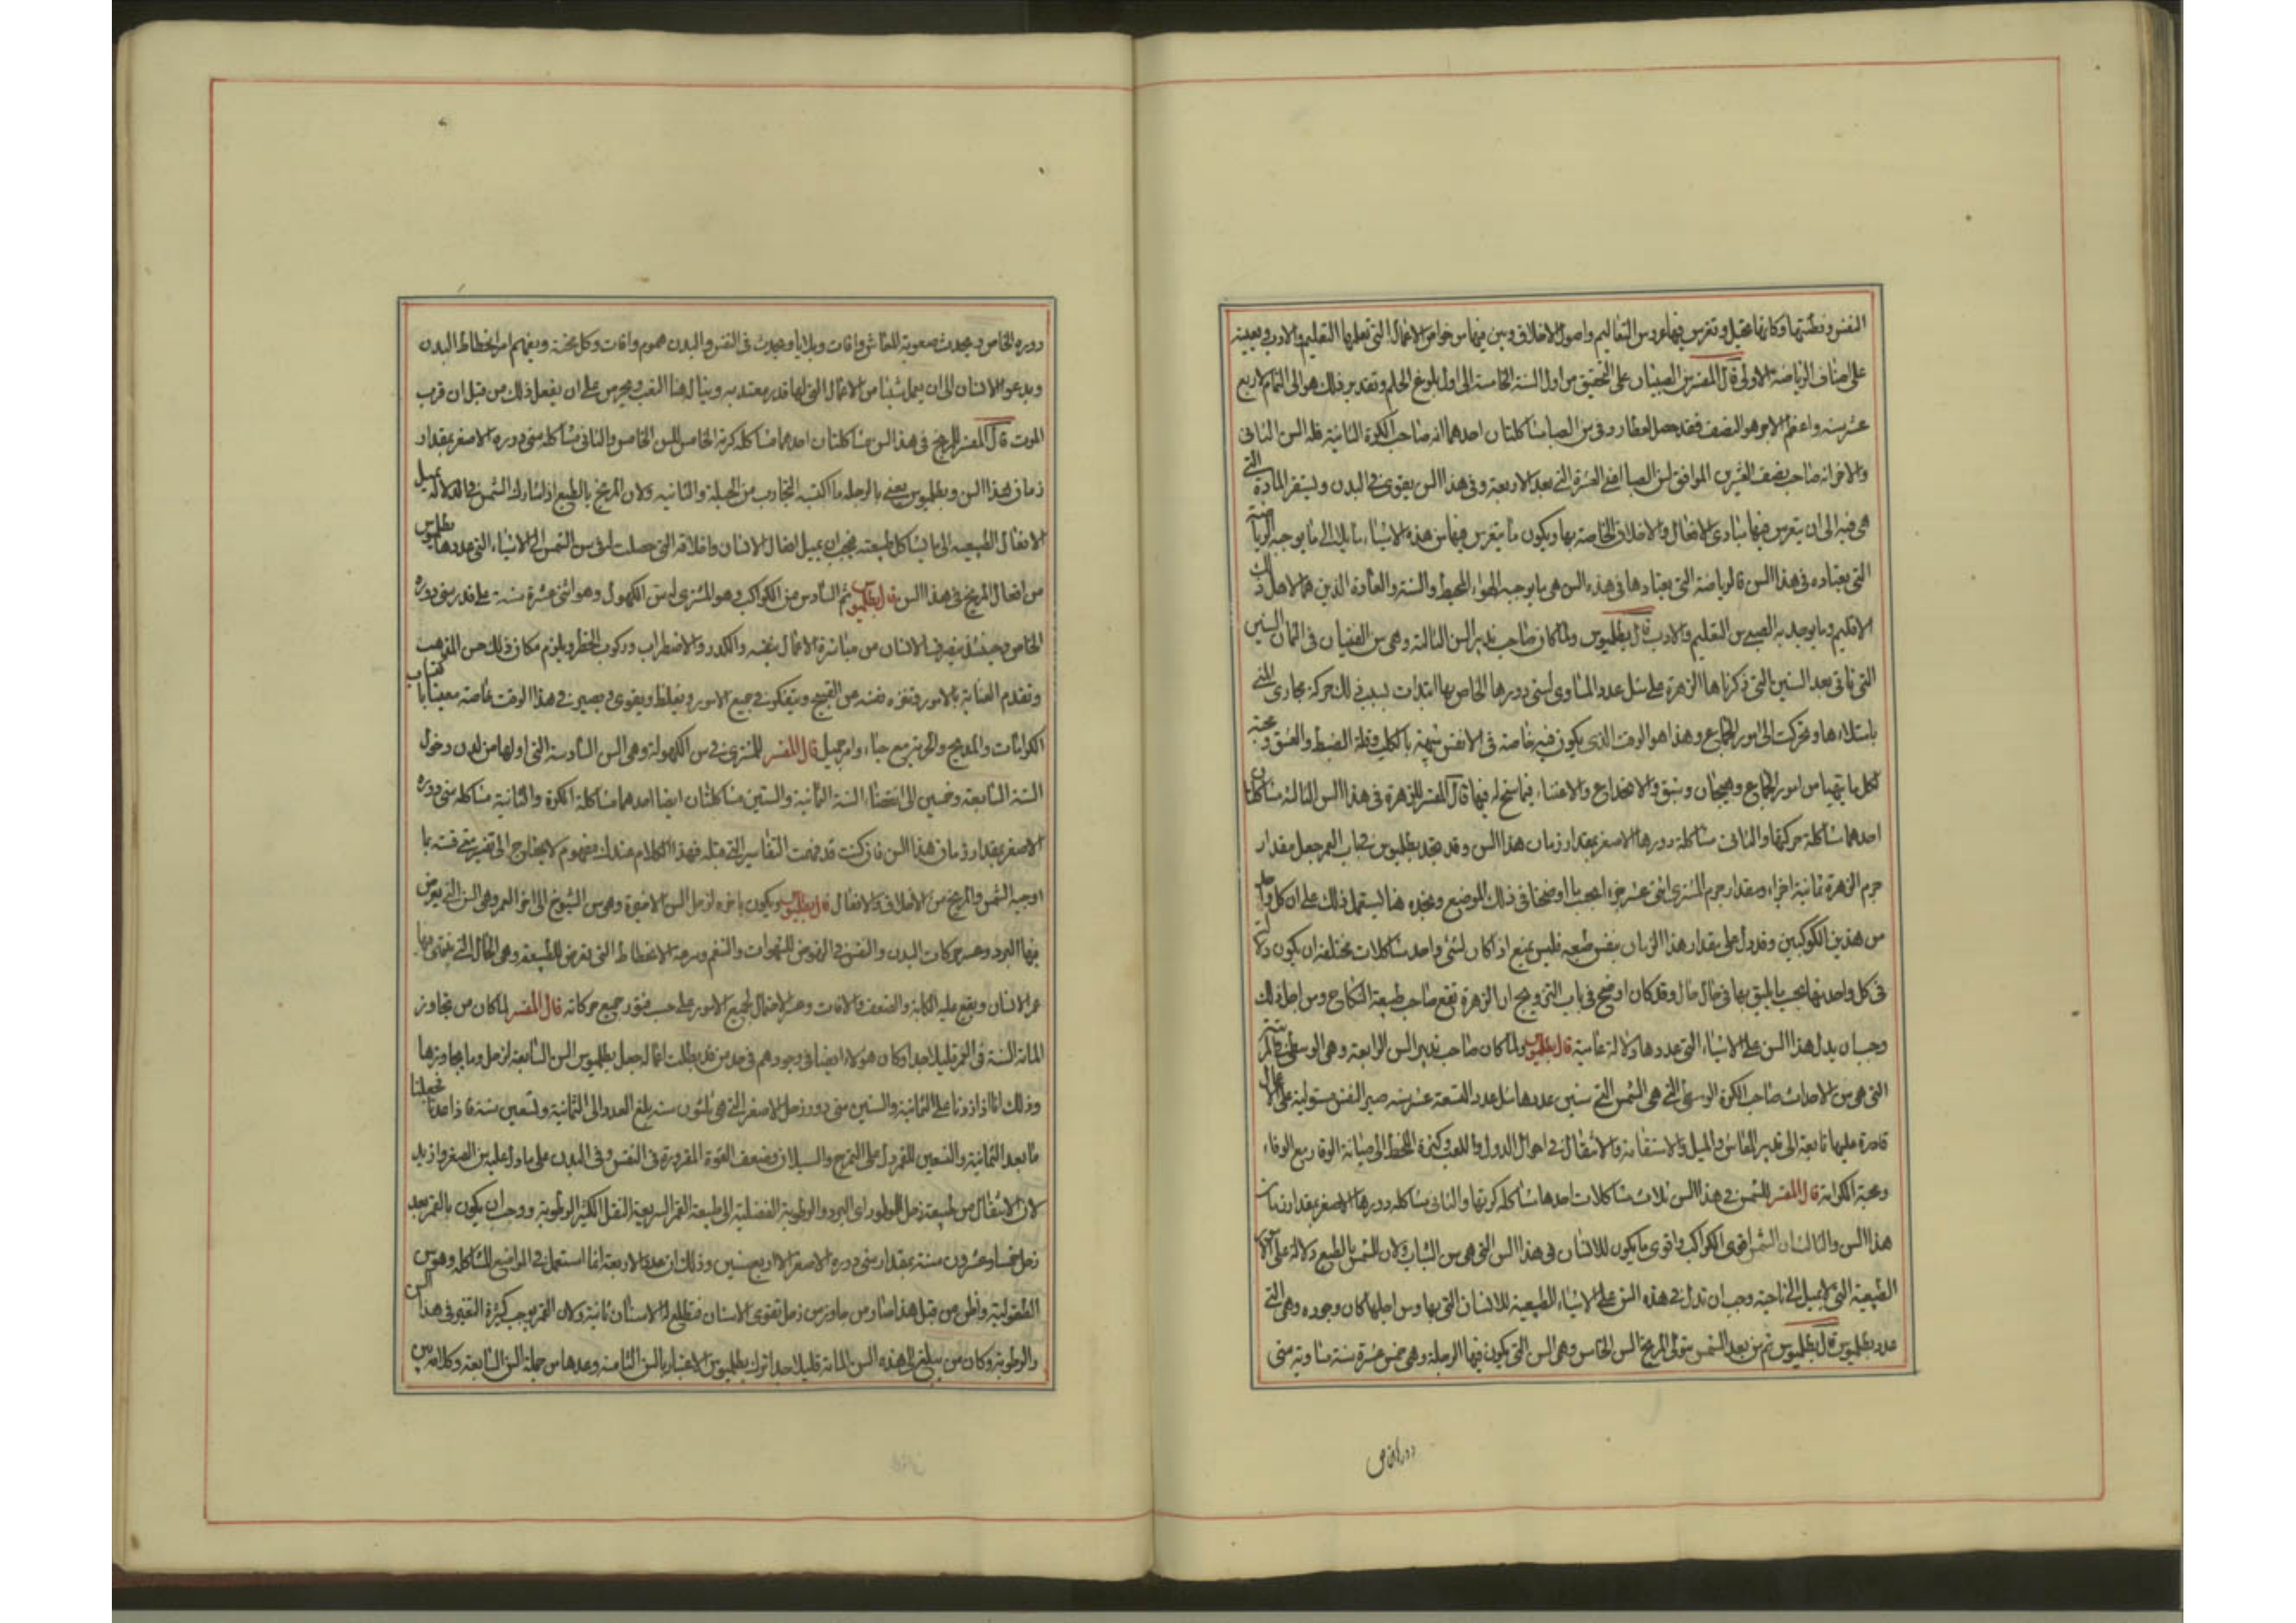 النفس وفطنتها وكانها تخيل وتغرس فيها عروس التعاليم واصول الاخلاق وبين فيها من خواص الاعمال التى تعلمها التعليم والادب وبعينه
على اصناف الرياضة الاولى قال المفسر سن الصبيان على التحقيق من اول السنة الخامسة الى اول بلوغ الحلم وتقدير ذلك هو الى التمام لاربع
عشر سنه واعظم الامر هو النصف فقد حصل لعطارد فى سن الصبا مشاكلتان احدهما انه صاحب الكرة الثانية فله السن الثانى
والاخر انه صاحب نصف العشرين الموافق لسن الصبا اعنى العشرة التى بعد الاربعة وفى هذا السن يقوى فى البدن ويستقر المادة التى
هى فيه الى ان يتغرس فيها مبادى الافعال والاخلاق الخاصة بها ويكون ما يتغرس فيها من هذه الاشياء مايلا الى ما يوجبه الرياضة
التى يعتاده فى هذا السن فالرياضة التى يعتادها فى هذه السن هى ما يوجبه الهواء المحيط والسنة والعادة الذين هما لاهل ذلك
الاقليم وما يوجد به الصبى من التعليم والادب قال بطلميوس ولما كان صاحب تدبير السن الثالثة وهى سن الفتيان فى الثمان السنين
التى تاتى بعد السنين التى ذكرناها الزهرة على مثل عدد المساوى لسنى دورها الخاص بها ابتدات بسبب ذلك حركة مجارى المنى
بامتلاءها وتحركت الى امور الجماع وهذا هو الوقت الذى يكون فيه خاصة فى الانفس شبيهة بالكلب وقلة الضبط والعشق ومحبة
لكل ما يتهيا من امور الجماع وهيجان وشبق والانخداع والاعتناء فيما سنح له فيها قال المفسر للزهرة فى هذا السن الثالثة مشاكلتان
احدهما مشاكلة حركتها والثانى مشاكلة دورها الاصغر بمقدار زمان هذا السن وقد نجد بطلميوس فى باب العمر جعل مقدار
جرم الزهرة ثمانية اجزاء ومقدار جرم المشترى اثنى عشر جزءا بحسب ما اوضحنا فى ذلك الموضع ونجده هنا يستعمل ذلك على ان كل واحد
من هذين الكوكبين وقد دل على مقدار هذا الزمان بنفس طبعه فليس يمنع اذا كان لشئ واحد مشاكلات مختلفة ان يكون دلالته
فى كل واحد منها بحسب ما يليق بها فى حال حال وقد كان اوضح فى باب التزويج ان الزهرة تقع صاحب طبيعة النكاح ومن اجل ذلك
وجب ان يدل هذا السن على الاشياء التى عددها دلالة عامية قال بطلميوس ولما كان صاحب تدبير السن الرابعة وهى الوسطى
التى هى سن الاحداث صاحب الكرة الوسطى التى هى الشمس التى سنين عددها مثل عدد التسعة عشر سنه صير النفس مستولية على الاعمال
قادرة عليها تابعة الى تدبير المعاش والميل والاستقامة والانتقال فى احوال الدول واللعب وكثرة الخطا الى صيانة الوقار مع الوفاء
ومحبة الكرامة قال المفسر للشمس فى هذا السن ثلاث مشاكلات احدها مشاكلة كرتها والثانى مشاكله دورها الاصغر بمقدار زمان
هذا السن والثالث ان الشمس اقوى الكواكب واقوى ما يكون للانسان فى هذا السن التى هى سن الشباب ولان للشمس بالطبع دلالة على
الطبيعية التى لا يميل الى ناحية وجب ان تدل فى هذه السن على الاشياء الطبيعية للانسان التى بها ومن اجلها كان وجوده وهى التى
عدد بطلميوس قال بطلميوس ثم من بعد الشمس يتولى المريخ السن الخامس وهى السن التى يكون فيها الرجلة وهى خمس عشرة سنة مساوية سنى
دوره الخاص
دوره الخاص به يحدث صعوبة المعاش وافات وبلايا ويحدث فى النفس والبدن هموم وافات وكل محنة ويفهم امر انحطاط البدن
ويدعو الانسان الى ان يعمل شيئا من الاعمال التى لها قدر معتد به وينال هذا التعب ويحرص على ان يفعل ذلك من قبل ان قرب
الموت قال المفسر للمريخ فى هذا السن مشاكلتان احدهما مشاكله كرته الخامس للسن الخامس والثانى مشاكله سنى دوره الاصغر بمقدار
زمان هذا السن وبطلميوس يعنى بالرجله ما اكتسبه التجارب من الجبلة والثانيه ولان المريخ بالطبع اذا شارك الشمس فى الدلالة يميل
الافعال الطبيعيه الى ما يشاكل طبيعته فيجب ان يميل افعال الانسان واخلاقه التى حصلت له فى سن الشمس الى الاشياء التى عددها بطلميوس
من افعال المريخ فى هذا السن قال بطلميوس ثم السادس من الكواكب وهو المشترى له سن الكهول وهو اثنى عشرة سنة على قدر سنى دوره
الخاص به حينئذ يصرف الانسان من مباشرة الاعمال بنفسه والكدر والاضطراب وركوب الخطر ويلزم مكان ذلك حسن المذهب
وتقدم العناية بالامور وتنزه نفسه عن القبيح ويتفكر فى جميع الامور ويغلظ ويقوى ويصير فى هذا الوقت خاصة معينا باكتساب
الكرامات والمديح والحرية مع حياء وامر جميل قال المفسر للمشترى فى سن الكهولة وهى السن السادسة التى اولها من لدن دخول
السنة السابعة وخمسين الى انقضاء السنة الثمانية والستين مشاكلتان ايضا احدهما مشاكلة الكرة والثانية مشاكله سنى دوره
الاصغر بمقدار زمان هذا السن فان كنت قد فهمت التفاسير التى قبله فهذا الكلام عندك مفهوم لا يحتاج الى تفسير متى قسته بما
اوجبه الشمس والمريخ من الاخلاق والافعال قال بطلميوس ويكون باخره لزحل السن الاخيرة وهى سن الشيوخ الى اخر العمر وهى السن التى يعرض
فيها البرد وعسر حركات البدن والنفس فى النهوض للشهوات والتنعم وسرعة الانحطاط التى تعرض للطبيعة وهى الحال التى يقتضى بها
عمر الانسان ويقع عليه الكابة والضعف والافات وعسر الاحتمال لجميع الامور على حسب فتور جميع حركاته قال المفسر لما كان من يجاوز
المائة السنة فى العمر قليلا جدا وكان هولاء ايضا فى وجودهم فى حد من قد بطلت اعماله جعل بطلميوس السن السابعة لزحل وما يجاوزها
وذلك انا اذا زدنا على الثمانية والستين سنى دور زحل الاصغر التى هى ثلثون سنه يبلغ العدد الى الثمانية وتسعين سنة فاذا عدنا فجعلنا
ما بعد الثمانية والتسعين للقمر دل على التهرج والسيلان وضعف القوة المفرورة فى النفس وفى البدن على ما دل عليه سن الصغر وازيد
لان الانتقال من طبيعة زحل اى البرد والرطوبة الفضلية الى طبيعة القمر السريعة النقل الكثير الرطوبة ووجب ان يكون بالقمر بعد
زحل خمسا وعشرون سنة بمقدار سنى دوره الاصغر الا اربع سنين وذلك ان عدد الاربعة انما استعمل فى المواضيع المشاكله وهو سن
الطفولية واظن من قبل هذا صار من جاوز سن زحل تقوى الاسنان فتطلع له الاسنان ثانية ولان القمر يوجب كثرة التغير فى هذا السن
والرطوبة وكان من يبلغ الى هذه السن المائة قليلا جدا ترك بطلميوس الاعتبار بالسن الثامنة وعدها من جملة السن السابعة وكلامه